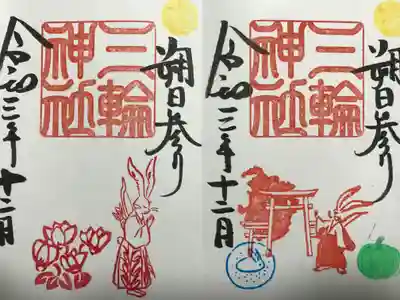 朔日参り
三輪神社
令和三年十二月
朔日参り
三輪神社
令和三年十二月